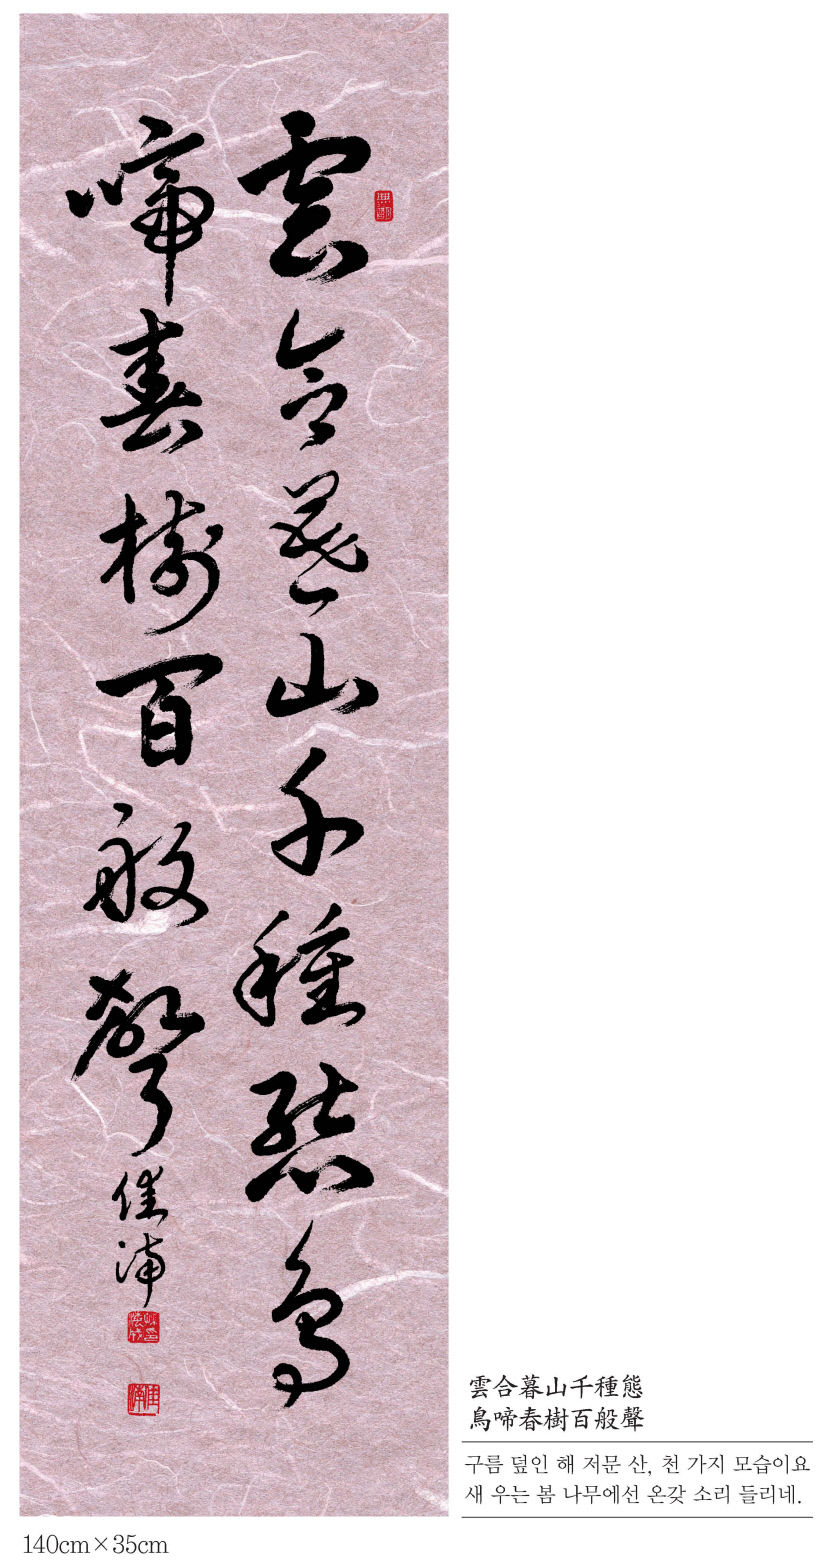 雲合暮山千種態鳥
啼春樹百般聲
佳浦
雲合暮山千種態
鳥啼春樹百般聲
구름 덮인 해 저문 산, 천 가지 모습이요
새 우는 봄 나무에선 온갖 소리 들리네.
140cm×35cm